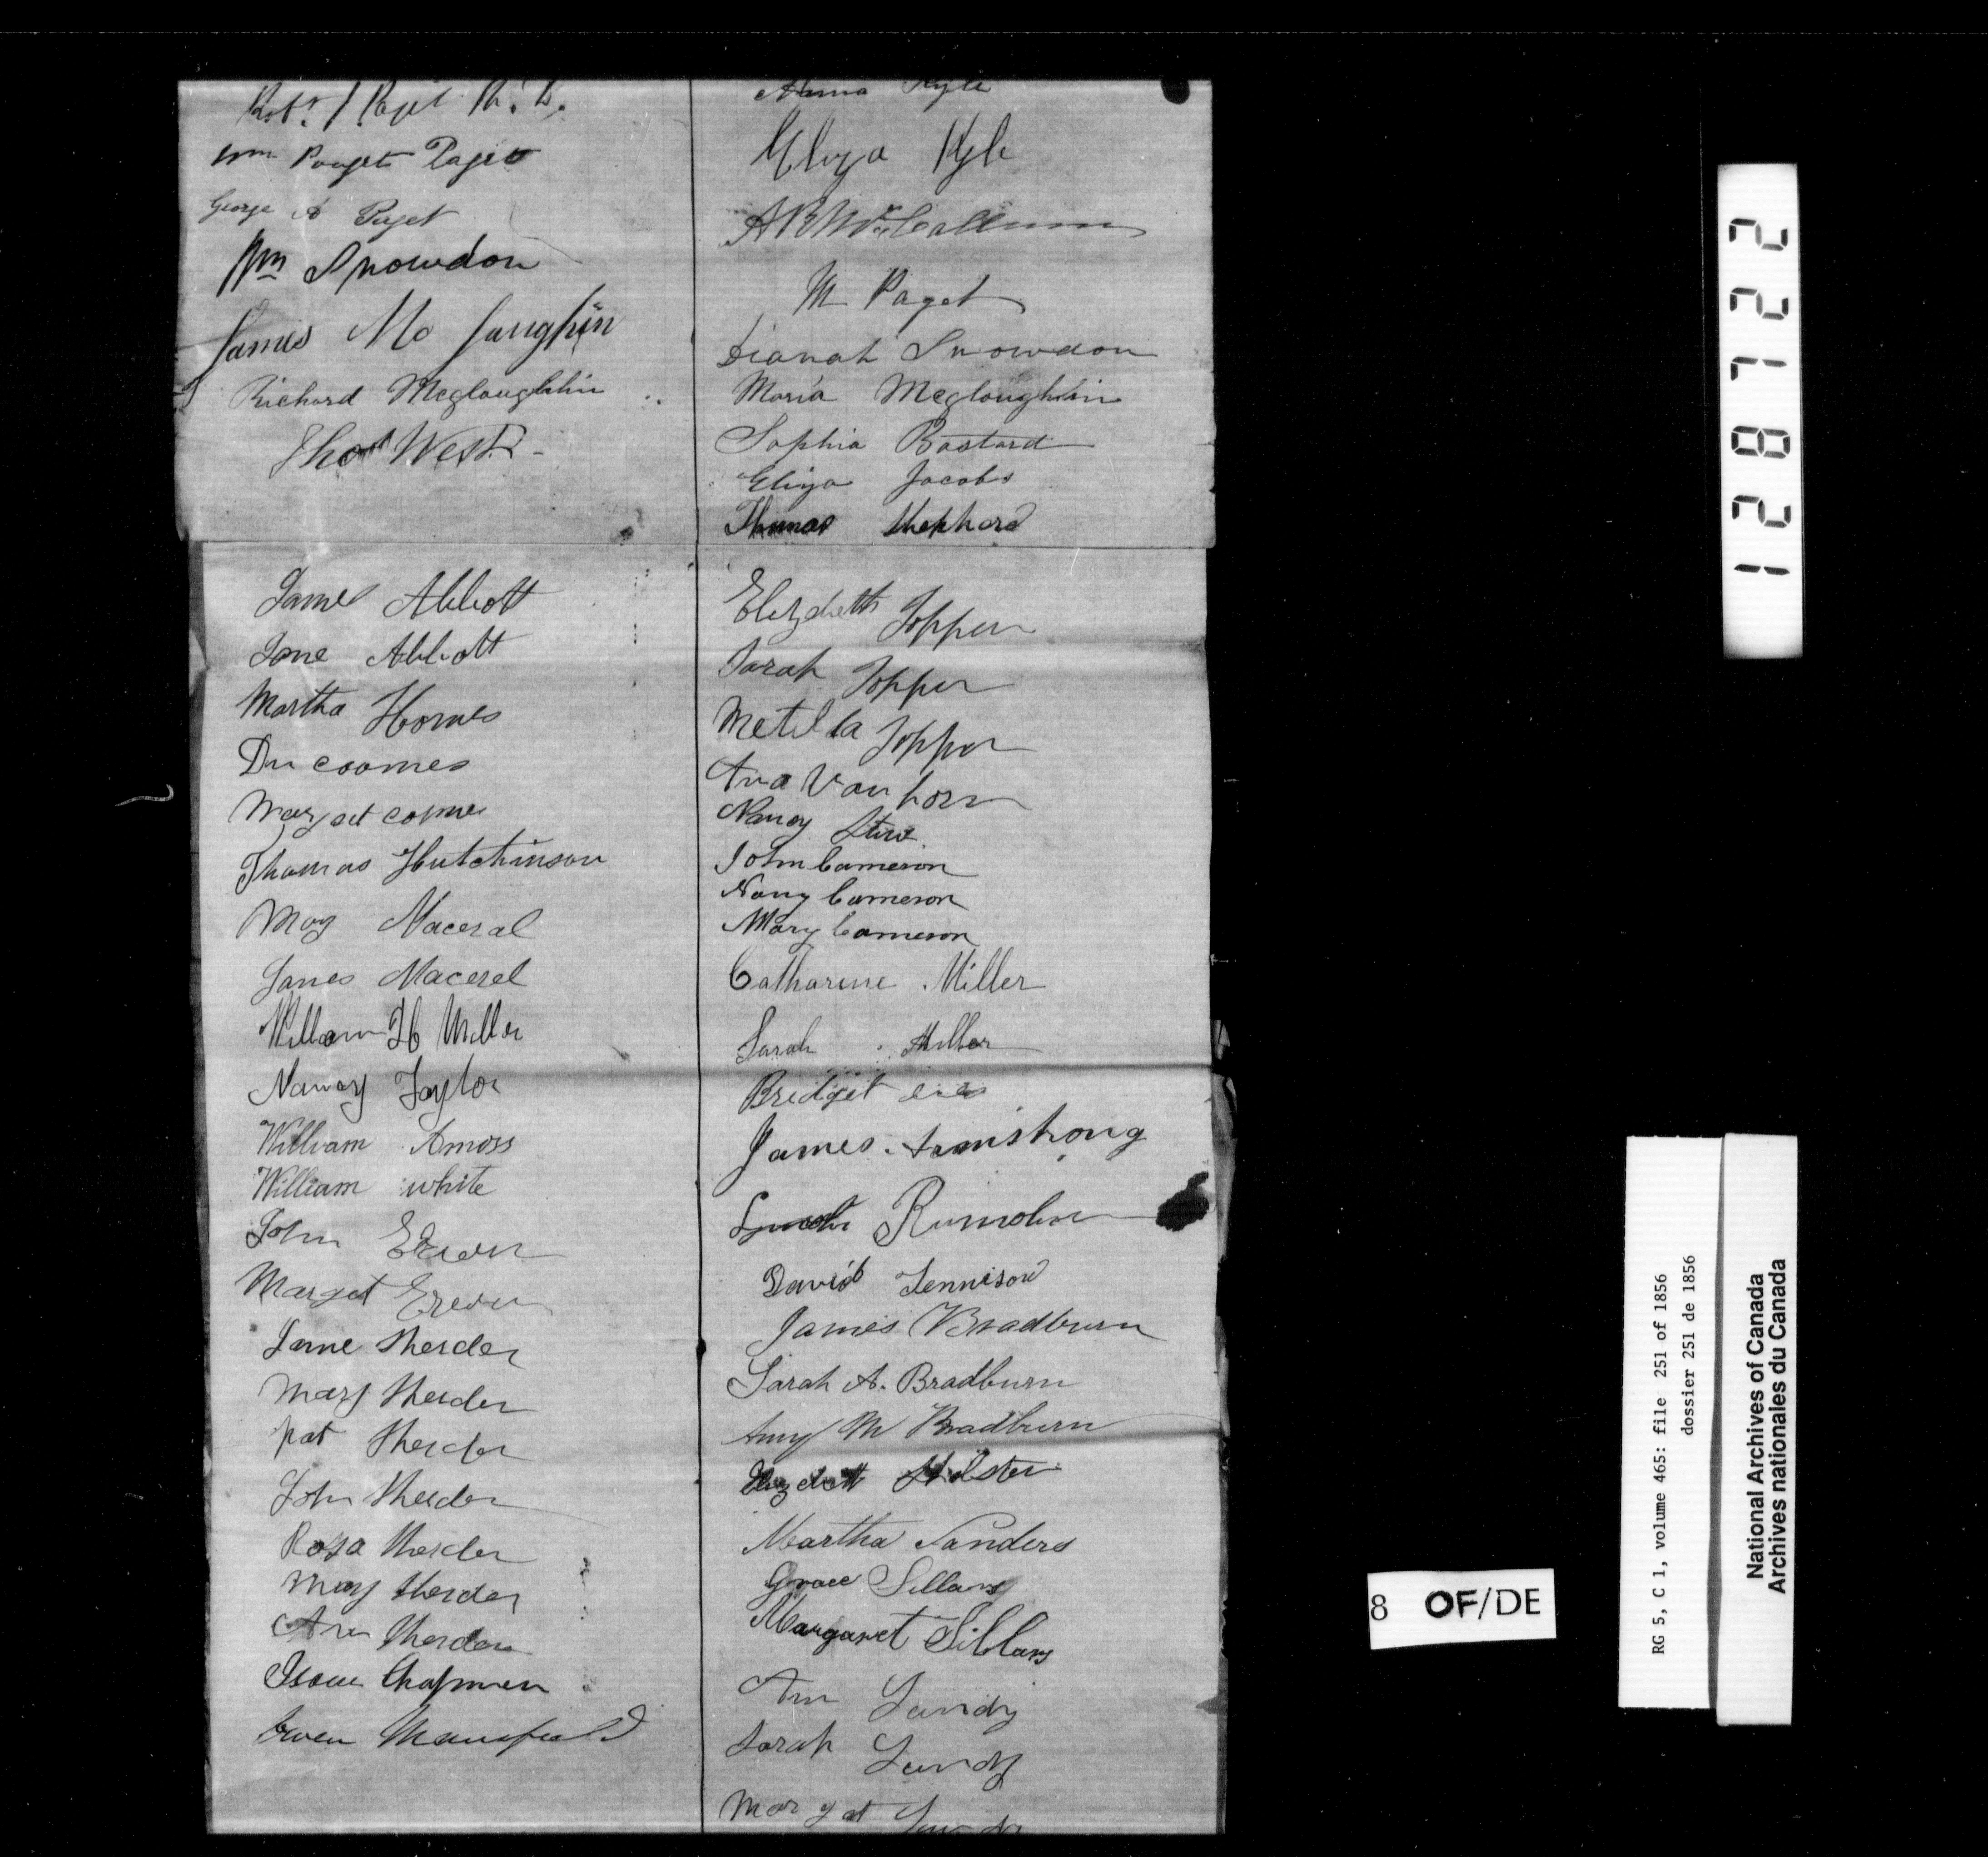 Robt. J. Paget
Wm Pauget Paget
George A Paget
Wm Snowdon
James Mc Laughlin
Richard Mcglaughlin
Thos West
James Abbott
Jane Abbott
Martha Homes
coomes
Margaet comes
Thomas Hutchinson
May Maceral
James Macerel
William H Miller
Nancy Taylor
William Amoss
William white
John Erwin
Marget Erwin
Jane Sherder
Mary Sherder
pat Sherder
John Sherder
Rosa Sherder
Mary Sherder
Ann Sherder
Isaac Chapmen
Owen Mansfield
Kyle
Eliza Kyle
A B McCallum
M Paget
Dianah Snowdon
Maria Mcglaughlin
Sophia Bastard
Eliza Jacobs
Thomas Shephard
Elizabeth Topper
Sarah Topper
Metilla Topper
Ana Vanhorn
Nancy
John Cameron
Nancy Cameron
Mary Cameron
Catharine Miller
Sarah Miller
Bridget
James Armstrong
David Jennison
James Bradburn
Sarah A. Bradburn
Amy M Bradburn
Elizabeth
Martha Sanders
Grace Sillars
Margaret Sillars
Ann Lundy
Sarah Lundy
Margat Lundy
128722
8 OF/DE
RG 5, C 1, volume 465: file 251 of 1856
dossier 251 de 1856
National Archives of Canada
Archives nationales du Canada